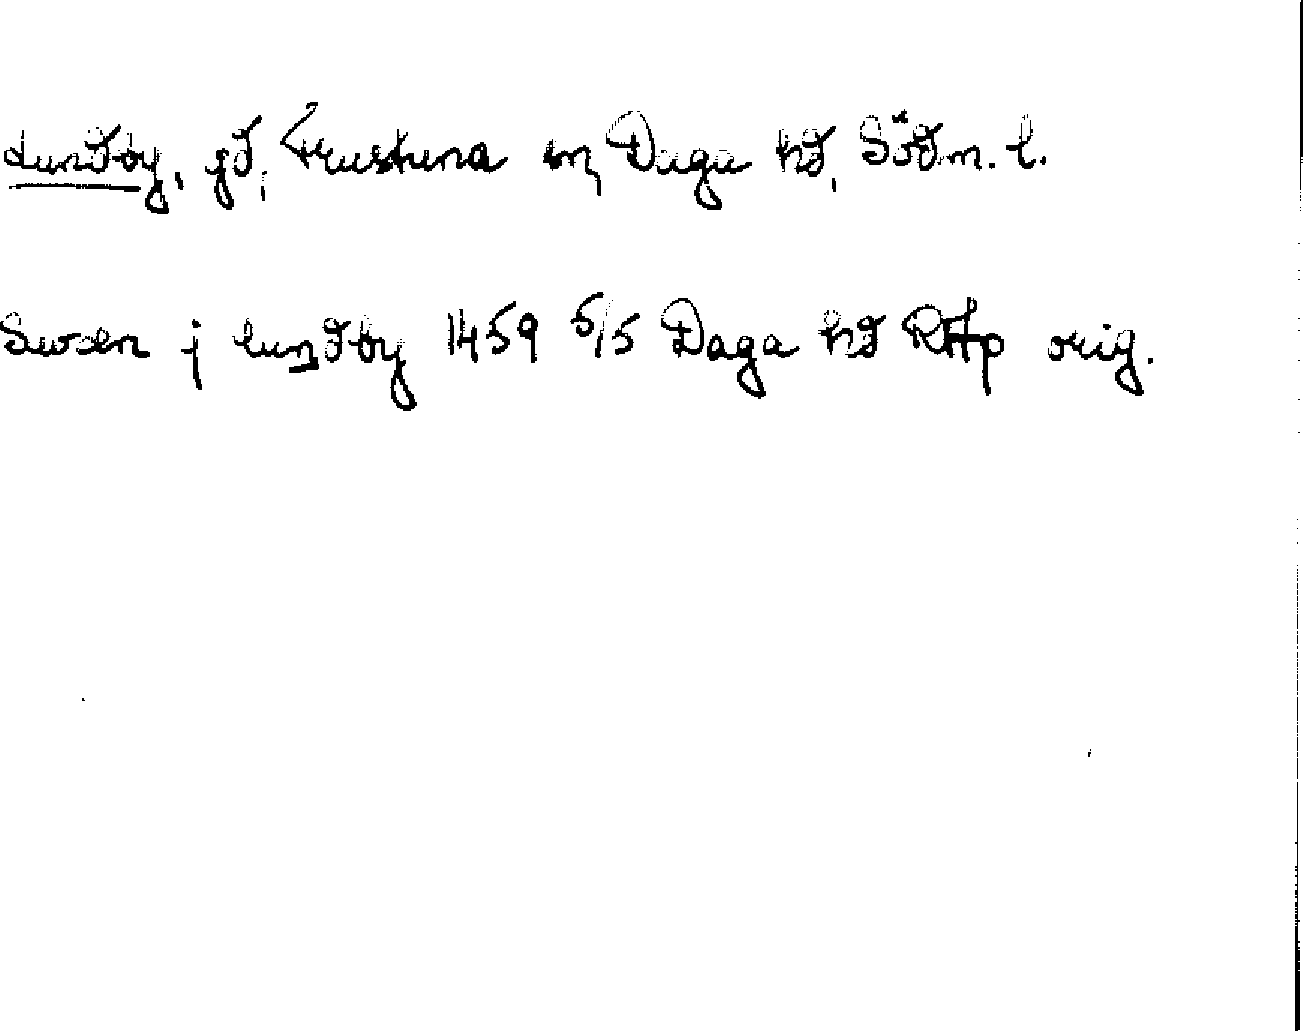 Lundby, gd, Frustuna sn, Daga hd, Södm. l.
Swæn j lundby 1459 5/5 Daga hd RAp orig.